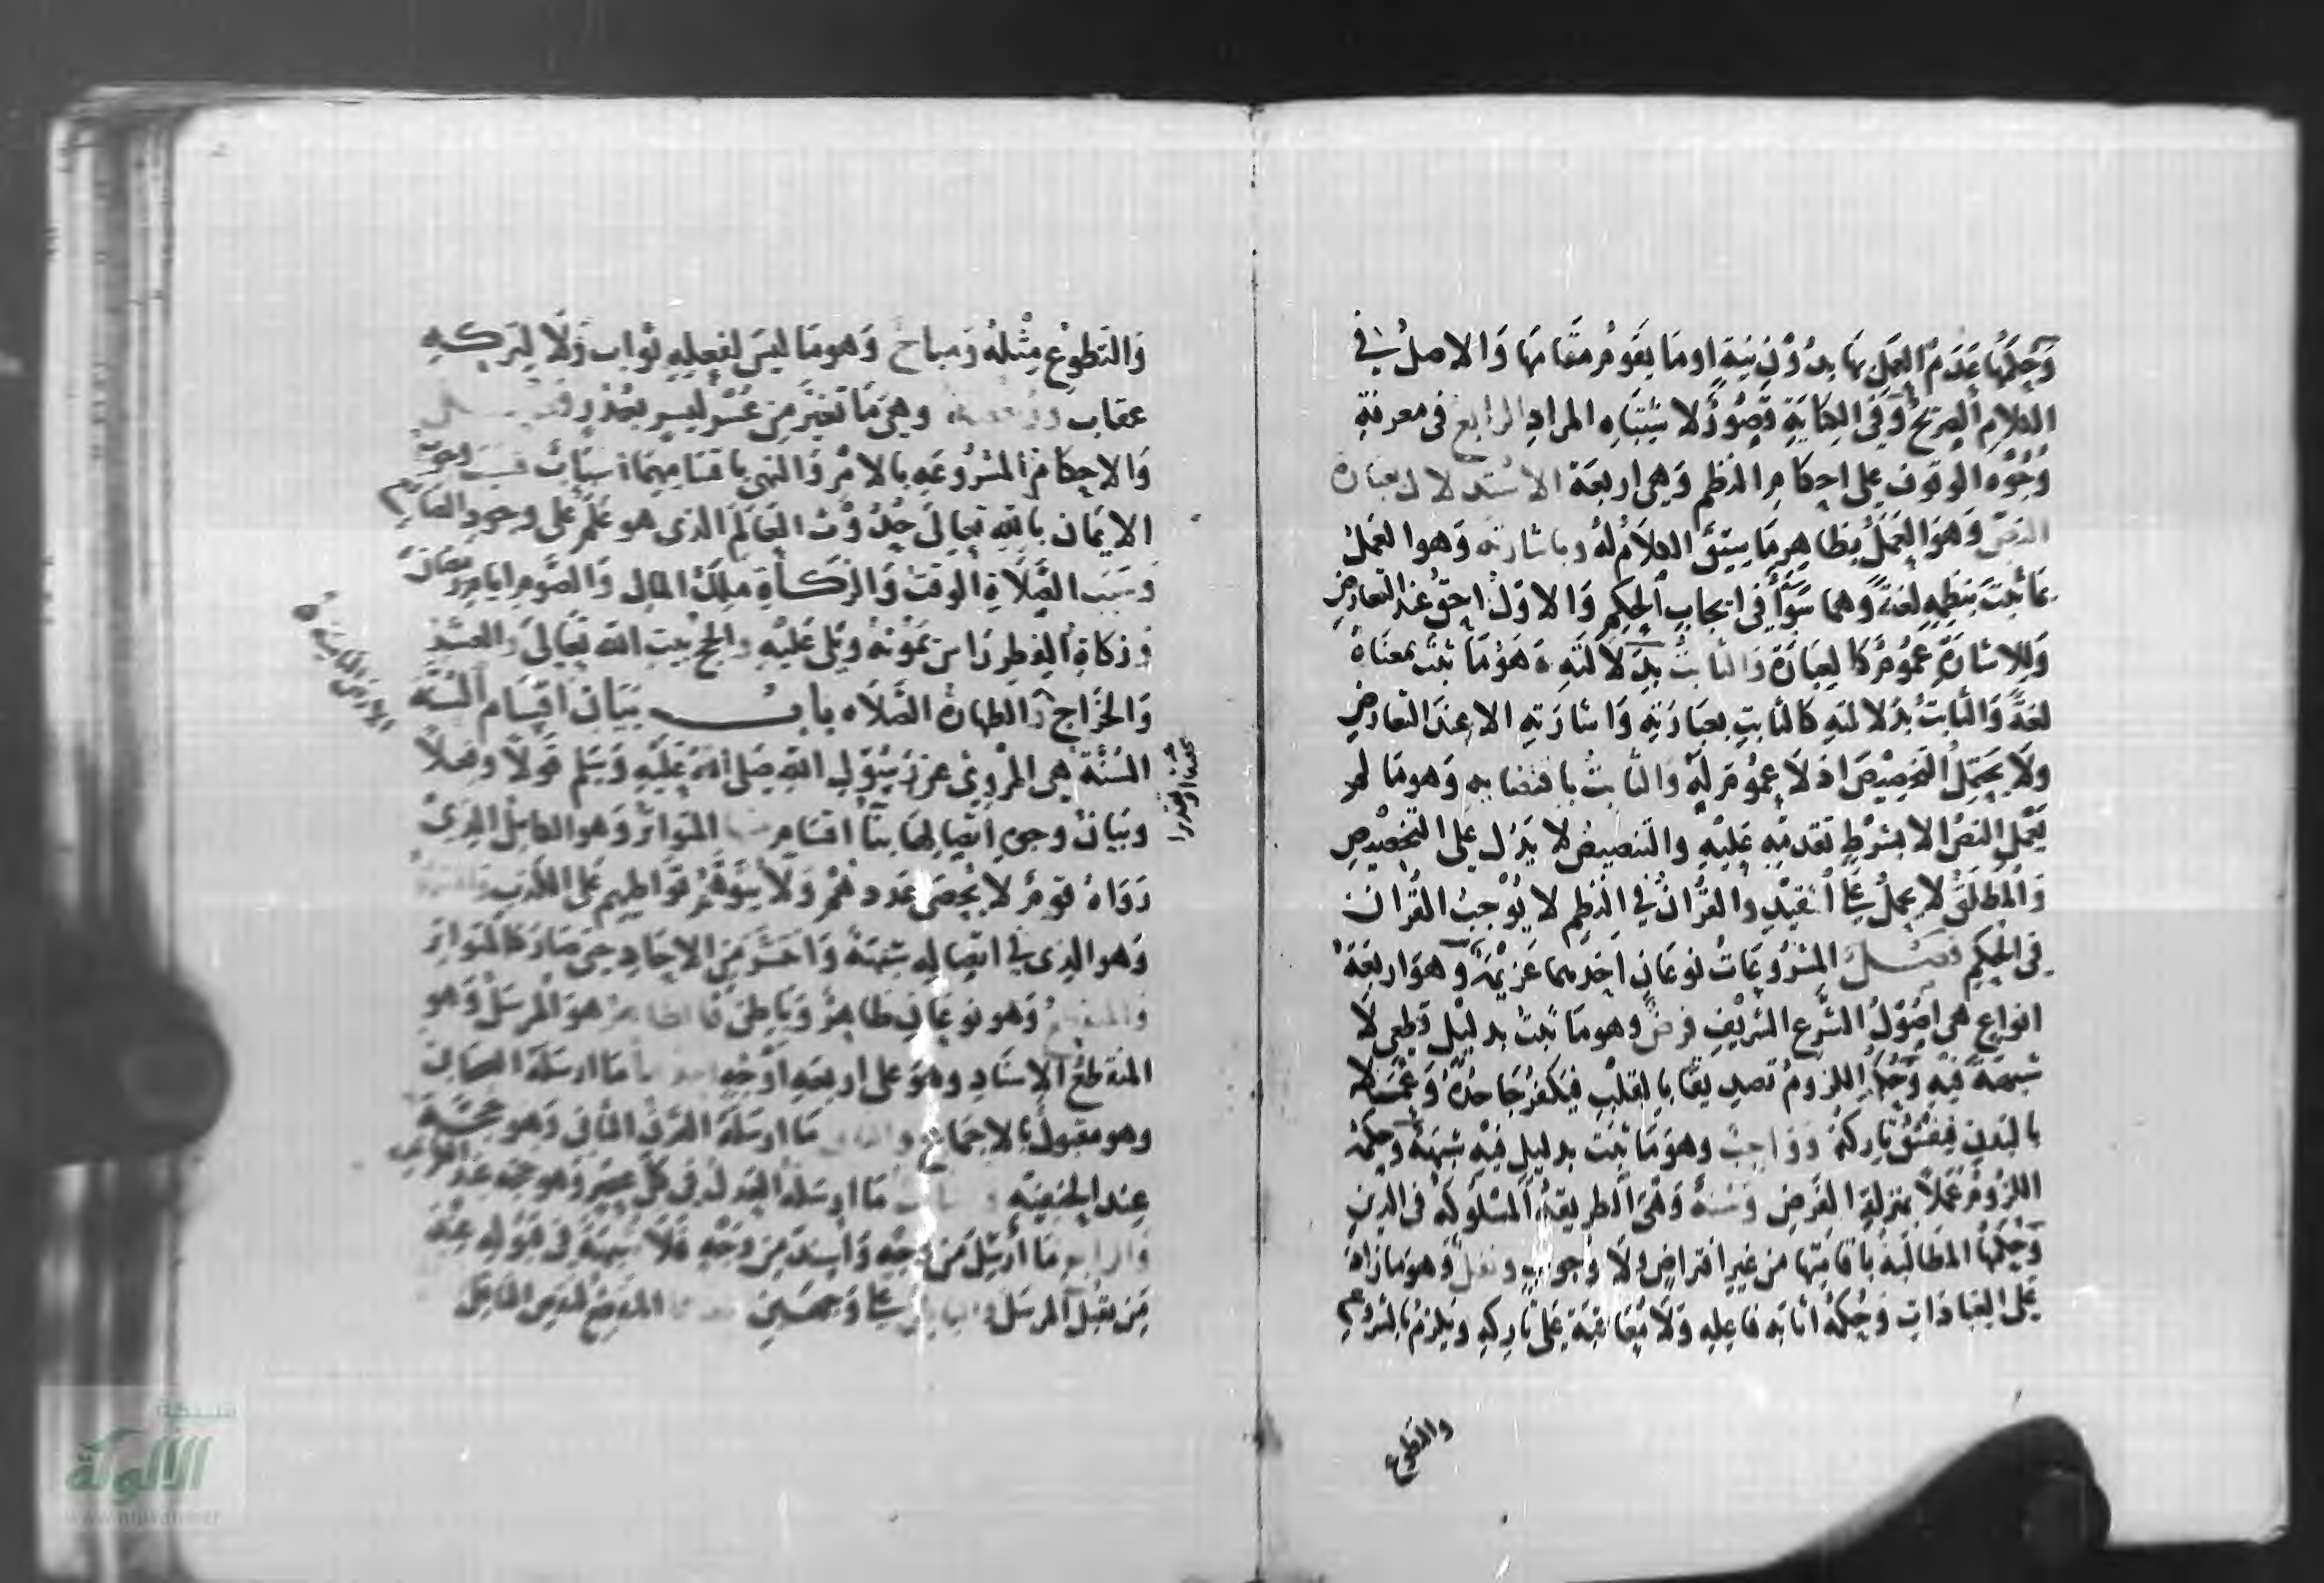 وَحُكمُهَا عَدَمُ العَمَلِ بهَا بدُوْنِ نيَةٍ اومَا يقَومُ مقَامهَا وَالاصلُ في
الكلامِ الصريحُ وَفي الكِنايَةِ قصُوْرٌ لاشتباه المرادِ الرابع في معرفةِ
وُجُوْه الوقوفِ على احكامِ النظمِ وَهي اربعَة الاسْتدلال بعبارة
النصّ وَهوَ العَمَلُ بظاهِرِ مَا سِيْقَ الكلاَمُ لهُ وباشارته وَهوالعَملُ
بمَا ثبَتَ بنَظمِهِ لغةً وهما سَوَاءٌ في ايجابِ الحكمِ وَالاوّلُ احَقّ عندَ التعارضِ
وَللاشارَةِ عمُوْمٌ كالعِبَارَة وَالثابتُ بدَلالَتهِ وَهوَ مَا ثبتَ بمعناهُ
لغَةً وَالثابتُ بدَلالتهِ كالثابتِ بعبَارَتهِ وَاشارَتهِ الا عِندَ التعارضِ
ولَا يحَتملُ التخصِيْصَ اذ لَا عمُوْمَ لَهُ وَالثابتُ باقتضَايهِ وَهومَا لم
يَعْملِ النصُّ الا بشرْطِ تقدمهِ عَليْهِ والتنصيصُ لا يَدُل على التخصِيْصِ
وَالمطلَقُ لا يحمَلُ عَلى المقيَّدِ وَالقرَانُ في النظِم لا يُوْجبُ القرَان
في الحكمِ فصْلٌ المشرُوعَاتُ نوعَانِ احَدهمَا عَزِيمَةٌ وَهوَ اربعَة
انواعِ هي اصُوْلُ الشّرعِ الشريْفِ فرضٌ وهومَا ثبتَ بدليْلٍ قطعي لَا
شبهةَ فيْهِ وَحُكمُه اللزومُ تصديقًا بالقلبِ فيَكفرُ جَاحدُهُ وَعمَلًا
بالبَدنِ فيفسُقُ تاركهُ وواجبٌ وهوَمَا ثبَتَ بدليلٍ فيْهِ شبهَةٌ وَحكمهُ
اللزُومُ عمَلًا بمنزلةِ الفَرضِ وَسُنةٌ وَهيَ الطريقةُ المسْلوُكةُ في الدينِ
وَحُكمُهَا المطالبَةُ باقامَتها من غيرِ افتراضٍ ولَا وُجوبٍ ونفلٌ وَهوَمازادَ
عَلى العِبادَاتِ وَحُكمهُ اثابَة فاعِلهِ وَلَا معَاقبَة عَلى تاركهِ ويَلزَمُ بالشروعِ
والتطوع
وَالتَطوّعِ مِثْلهُ وَمباحٌ وَهومَا ليسَ لفعِلهِ ثوابٌ وَلَا لترَكهِ
عقابٌ ورُخصة وهيَ مَا تَغيَّرَ مِن عُسْرٍ ليسرٍ بعُذْرٍ فصل
وَالاحكامُ المشرُوعَةِ بالامْرِ وَالنهي باقسَامِهِمَا اسبَابٌ
الايمَان باللهِ تعالى حُدُوْث العَالَمِ الذي هو علَمٌ على وجودِ الصانِعِ
وَسَبَب الصَّلَاةِ الوقتُ وَالزكَاةِ ملكُ المَالِ وَالصَّومِ ايام رمضَانَ
وَزكاةِ الفِطرِ رَاس يمَوْنهُ ويَلي عَليْهِ والحج بيت الله تعَالى وَالعشرِ
الارض الناميَة
وَالخرَاجِ وَالطهارةُ الصَّلَاه باب بَيَان اقسَام السُّنَّة
السُنَّة هي المرْويُّ عن رَسُوْلِ اللهِ صَلى اللهُ عَلَيْهِ وَسَلم قولًا وفعلًا
وبيَانُ وجهِ اتّصَالِهَا بنَا اقسَام المتوَاترُ وَهوَ الكاملُ الذيْ
رَوَاهُ قومٌ لا يُحصَى عَددهُمُ وَلَا يتوَهَّمُ توَاطيهم على الكذبِ
وَهو الذي في اتصَالهِ شبْهَةٌ وَانتشرَ مِنَ الاحَادِ حتى صَارَ كالمتَواتر
وَالمنقطع وَهو نوعانِ ظاهرٌ وَباطنٌ فالظاهرُ هوَ المرسَلُ وَهو
المنقطعُ الاسنَادِ وهوَ على اربعَةِ اوْجُهٍ مَا ارسلَهُ الصحابي
وهو مقبولٌ بالاجمَاعِ مَا ارسَلهُ القَرنُ الثاني وَهو حجّة
عِند الحنفيّهِ مَا ارسَلهُ العَدلُ في كل عصرٍ وَهوحجة عندَ الكرخي
وَالرابع مَا أُرْسِلَ مِن وجهٍ وَأسندَ مِن وَجهٍ فلَا شبهةَ في قبولهِ عِنْدَ
مَن يقبلُ المرسَلَ والباطن على وَجهيَن